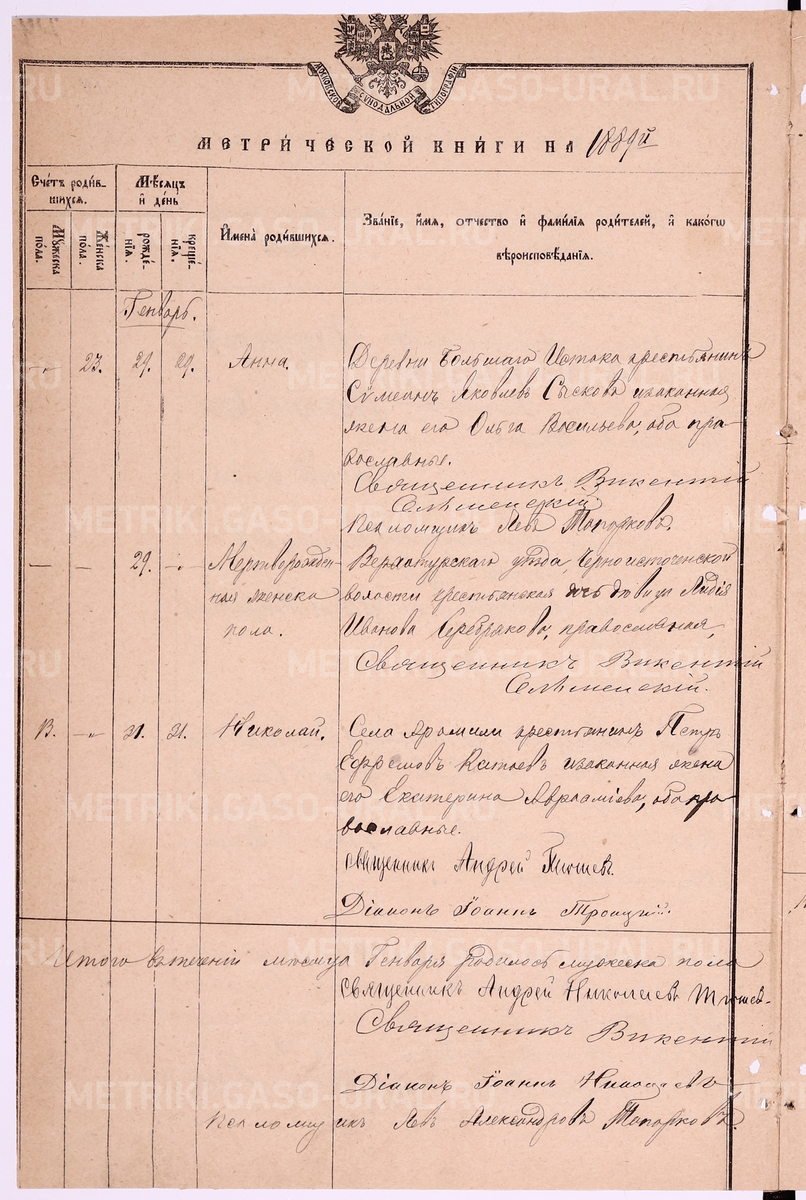 МОСКОВСКОЙ СѴНОДАЛЬНОЙ ТИПОГРАФІИ
МЕТРИ́ЧЕСКОЙ КНИ́ГИ НА 1889й
Сче́тъ роди́в-
шихся.
Мѣ́сяцъ
и҆ де́нь
Мꙋ́жеска
по́ла.
Же́нска
по́ла.
рожде́-
нїѧ.
креще́-
нїѧ.
И҆мена̀ роди́вшихся.
Зва́нїе, и҆́мѧ, ѻ҆́тчество и҆ фами́лїѧ роди́телей, и҆ како́гѡ
вѣроисповѣ́данїѧ.
Генварь.
-"- 23. 29. 29. Анна. Деревни Большаго Истока крестьянинъ
Сѵмеонъ Яковлевъ Сысковъ и законная
жена его Ольга Васильева, оба пра-
вославные.
Священникъ Викентій
Селѣменскій
Псаломщикъ Левъ Топорковъ.
- - 29. -"- Мертворожден- Верхотурскаго уѣзда, Черноисточенской
ная женска волости крестьянская дѣвица Лидія
пола. Иванова Серебрякова, православная,
Священникъ Викентій
Селѣменскій.
13. -"- 31. 31. Николай. Села Арамили крестьянинъ Петръ
Ефремовъ Катаевъ и законная жена
его Екатерина Авраамова, оба пра-
вославные.
Священникъ Андрей
Діаконъ Іоаннъ Троицкій.
Итого въ теченіи мѣсяца Генваря родилось мужеска пола
Священникъ Андрей Николаевъ
Священникъ Викентій
Діаконъ Іоаннъ Николаевъ
Псаломщикъ Левъ Александровъ Топорковъ.
METRIKI.GASO-URAL.RU